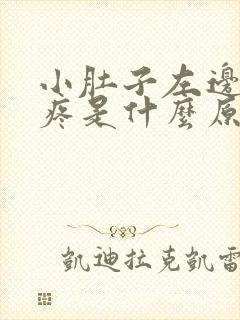 小肚子左邊
疼是什麼原
凱迪拉克凱雷